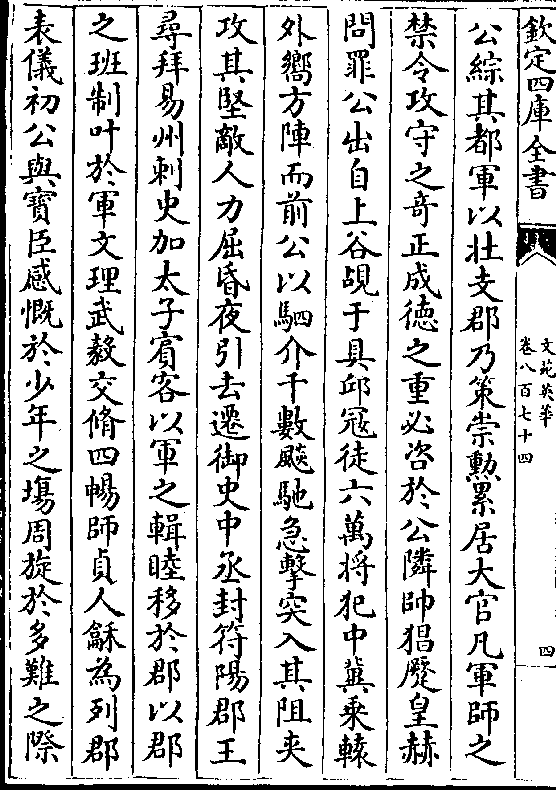 欽定四庫全書
文苑英華
卷八百七十四
四
公綜其都軍以壯支郡乃策崇勲累居大官凡軍師之
禁令攻守之竒正成徳之重必咨於公隣帥猖蹷皇赫
問罪公出自上谷覘于具邱冦徒六萬将犯中冀乗轅
外嚮方陣而前公以駟介千數飈馳急擊突入其阻夾
攻其堅敵人力屈昏夜引去遷御史中丞封符陽郡王
尋拜易州刺史加太子賓客以軍之輯睦移於郡以郡
之班制叶於軍文理武毅交脩四暢師貞人龢為列郡
表儀初公與寳臣感慨於少年之塲周旋於多難之際